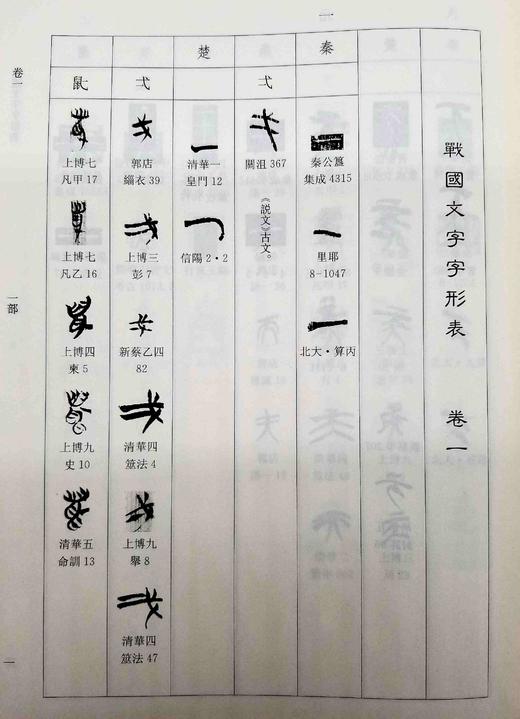 戰國文字字形表 卷一
一
秦
秦公簋
集成 4315
里耶
8-1047
北大·算丙
弌
關沮 367
《説文》古文。
楚
清華一
皇門 12
信陽 2·2
弌
郭店
緇衣 39
上博三
彭 7
新蔡乙四
82
清華四
筮法 4
上博九
舉 8
清華四
筮法 47
上博七
凡甲 17
上博七
凡乙 16
上博四
柬 5
上博九
史 10
清華五
命訓 13
卷一
一部
一